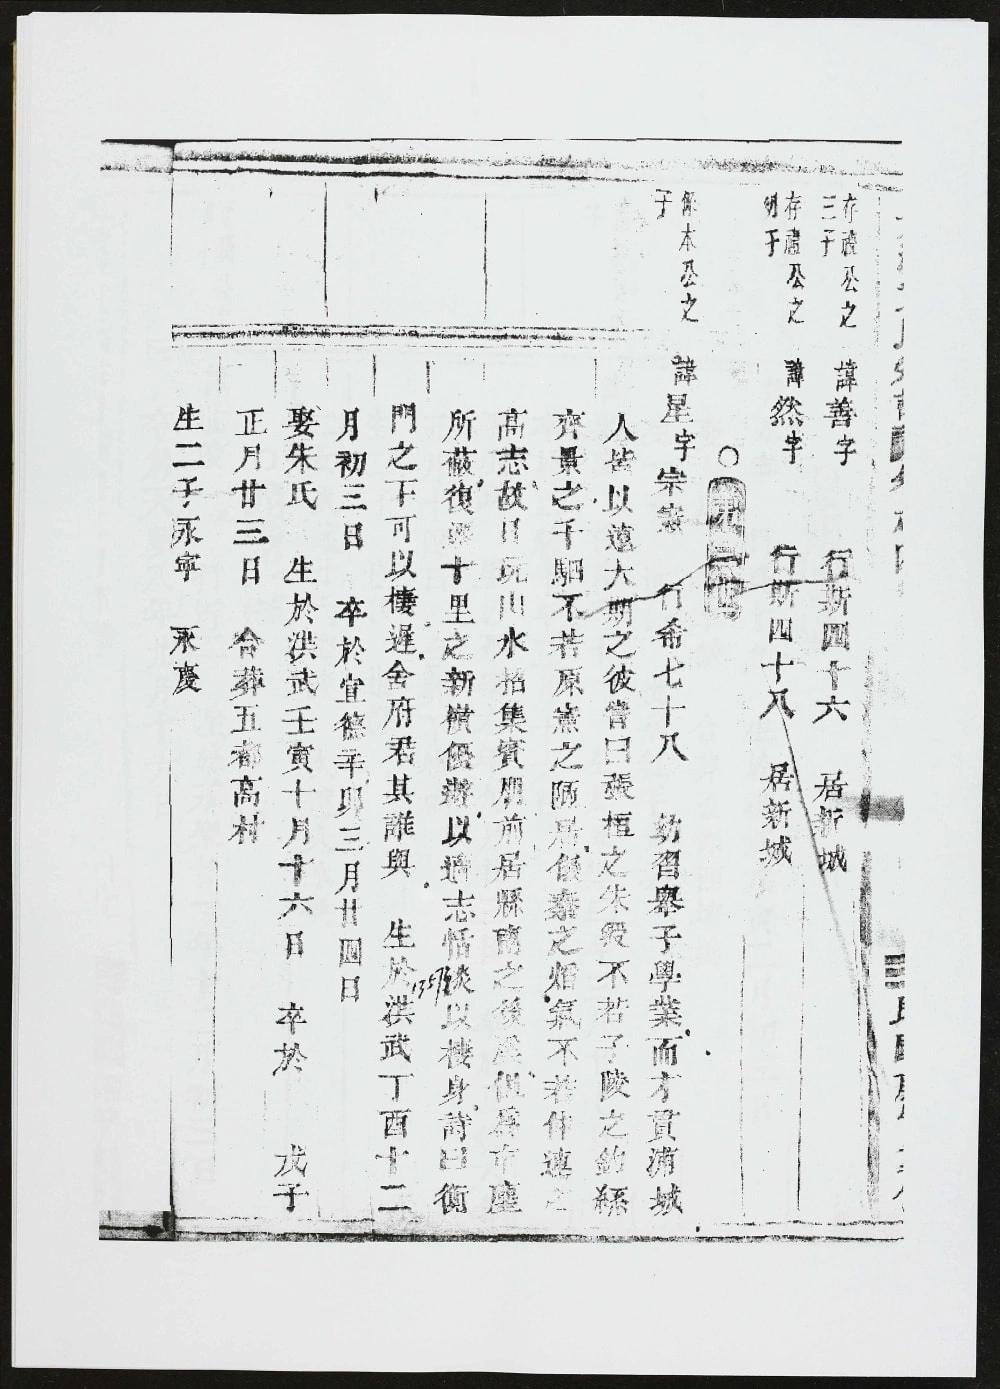 存禮公之
三子
諱善字 行斯四十六 居新城
存禮公之
幼子
諱然字 行斯四十八 居新城
〇
係本公之
子
諱星字宗憲 行希七十八 幼習舉子學業而才貫浦城
人皆以遠大期之彼嘗曰張桓之朱綬不若子陵之釣絲
齊景之千駟不若原憲之陋居儀秦之烟氣不若仲連之
高志故日玩山水招集賓朋前居縣南之後溪但為市廛
所蔽復 十里之新嶺優遊以適志恬淡以棲身詩曰衡
門之下可以棲遲舍府君其誰與 生於洪武丁酉十二
月初三日 卒於宣德辛卯三月廿四日
1357
娶朱氏 生於洪武壬寅十月十六日 卒於 戊子
正月廿三日 合葬五都高村
生二子永寧 永慶